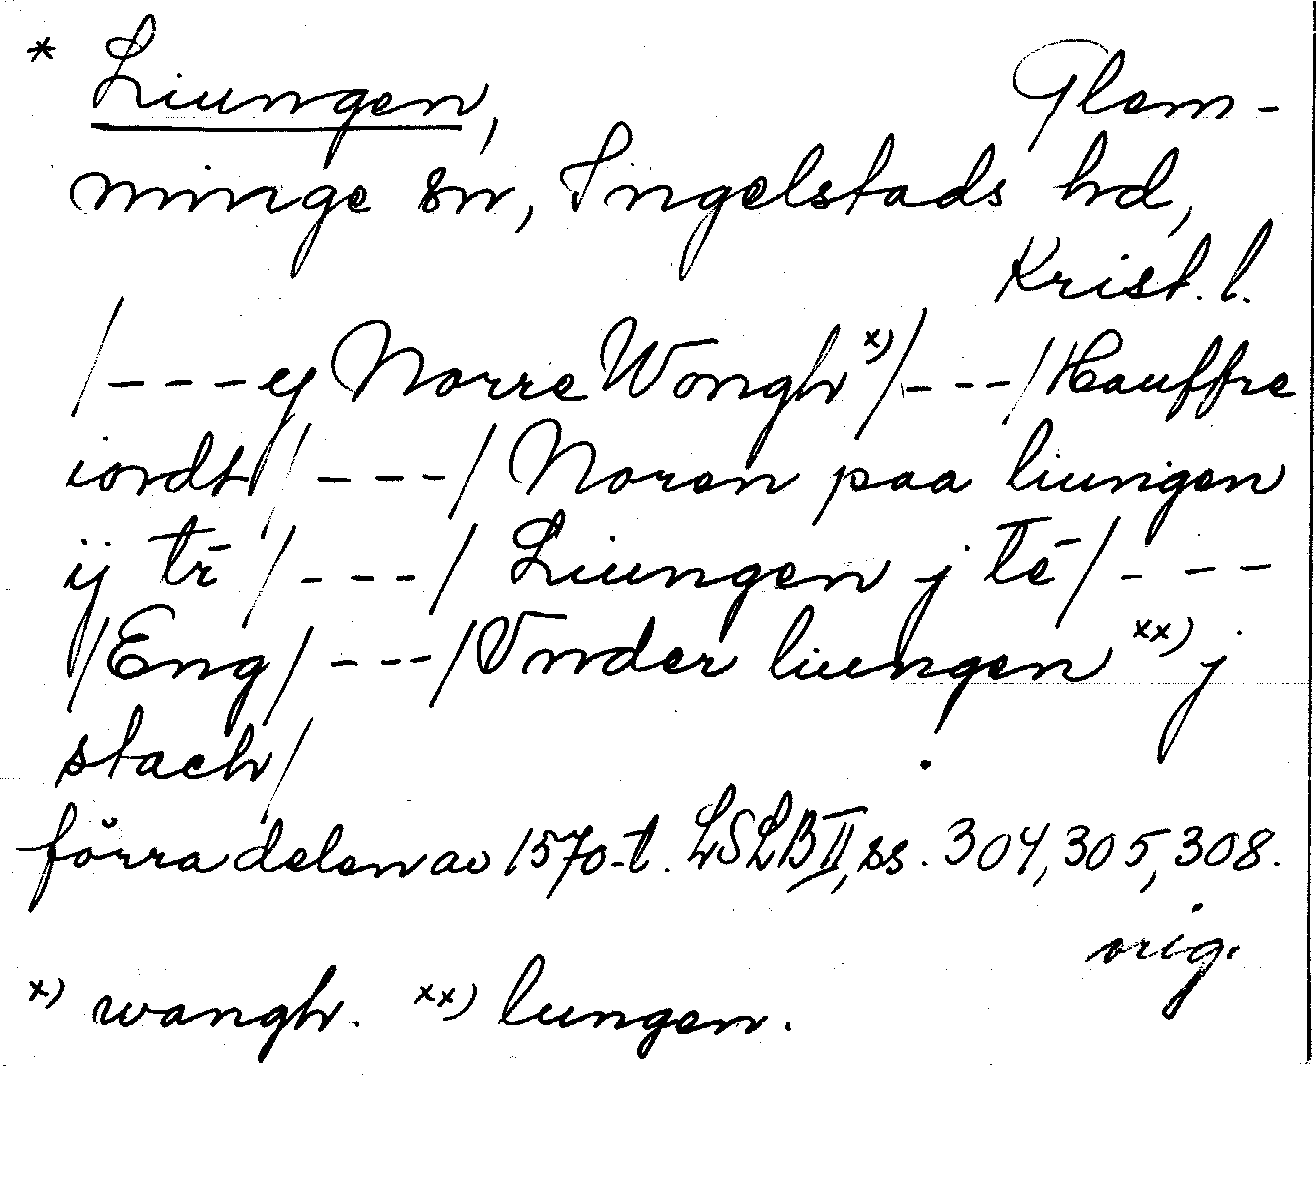 * Liungen, Glem-
minge sn, Ingelstads hd,
Krist. l.
/---y Norre Wongh x)/---/Hauffre
iordt/---/Noren paa liungen
ij tr̄/---/Liungen j tē/---
/Eng/---/Vnder liungen xx) j
stach/
förra delen av 1570-t. LSLB II, ss. 304, 305, 308.
orig.
x) wangh. xx) lungen.